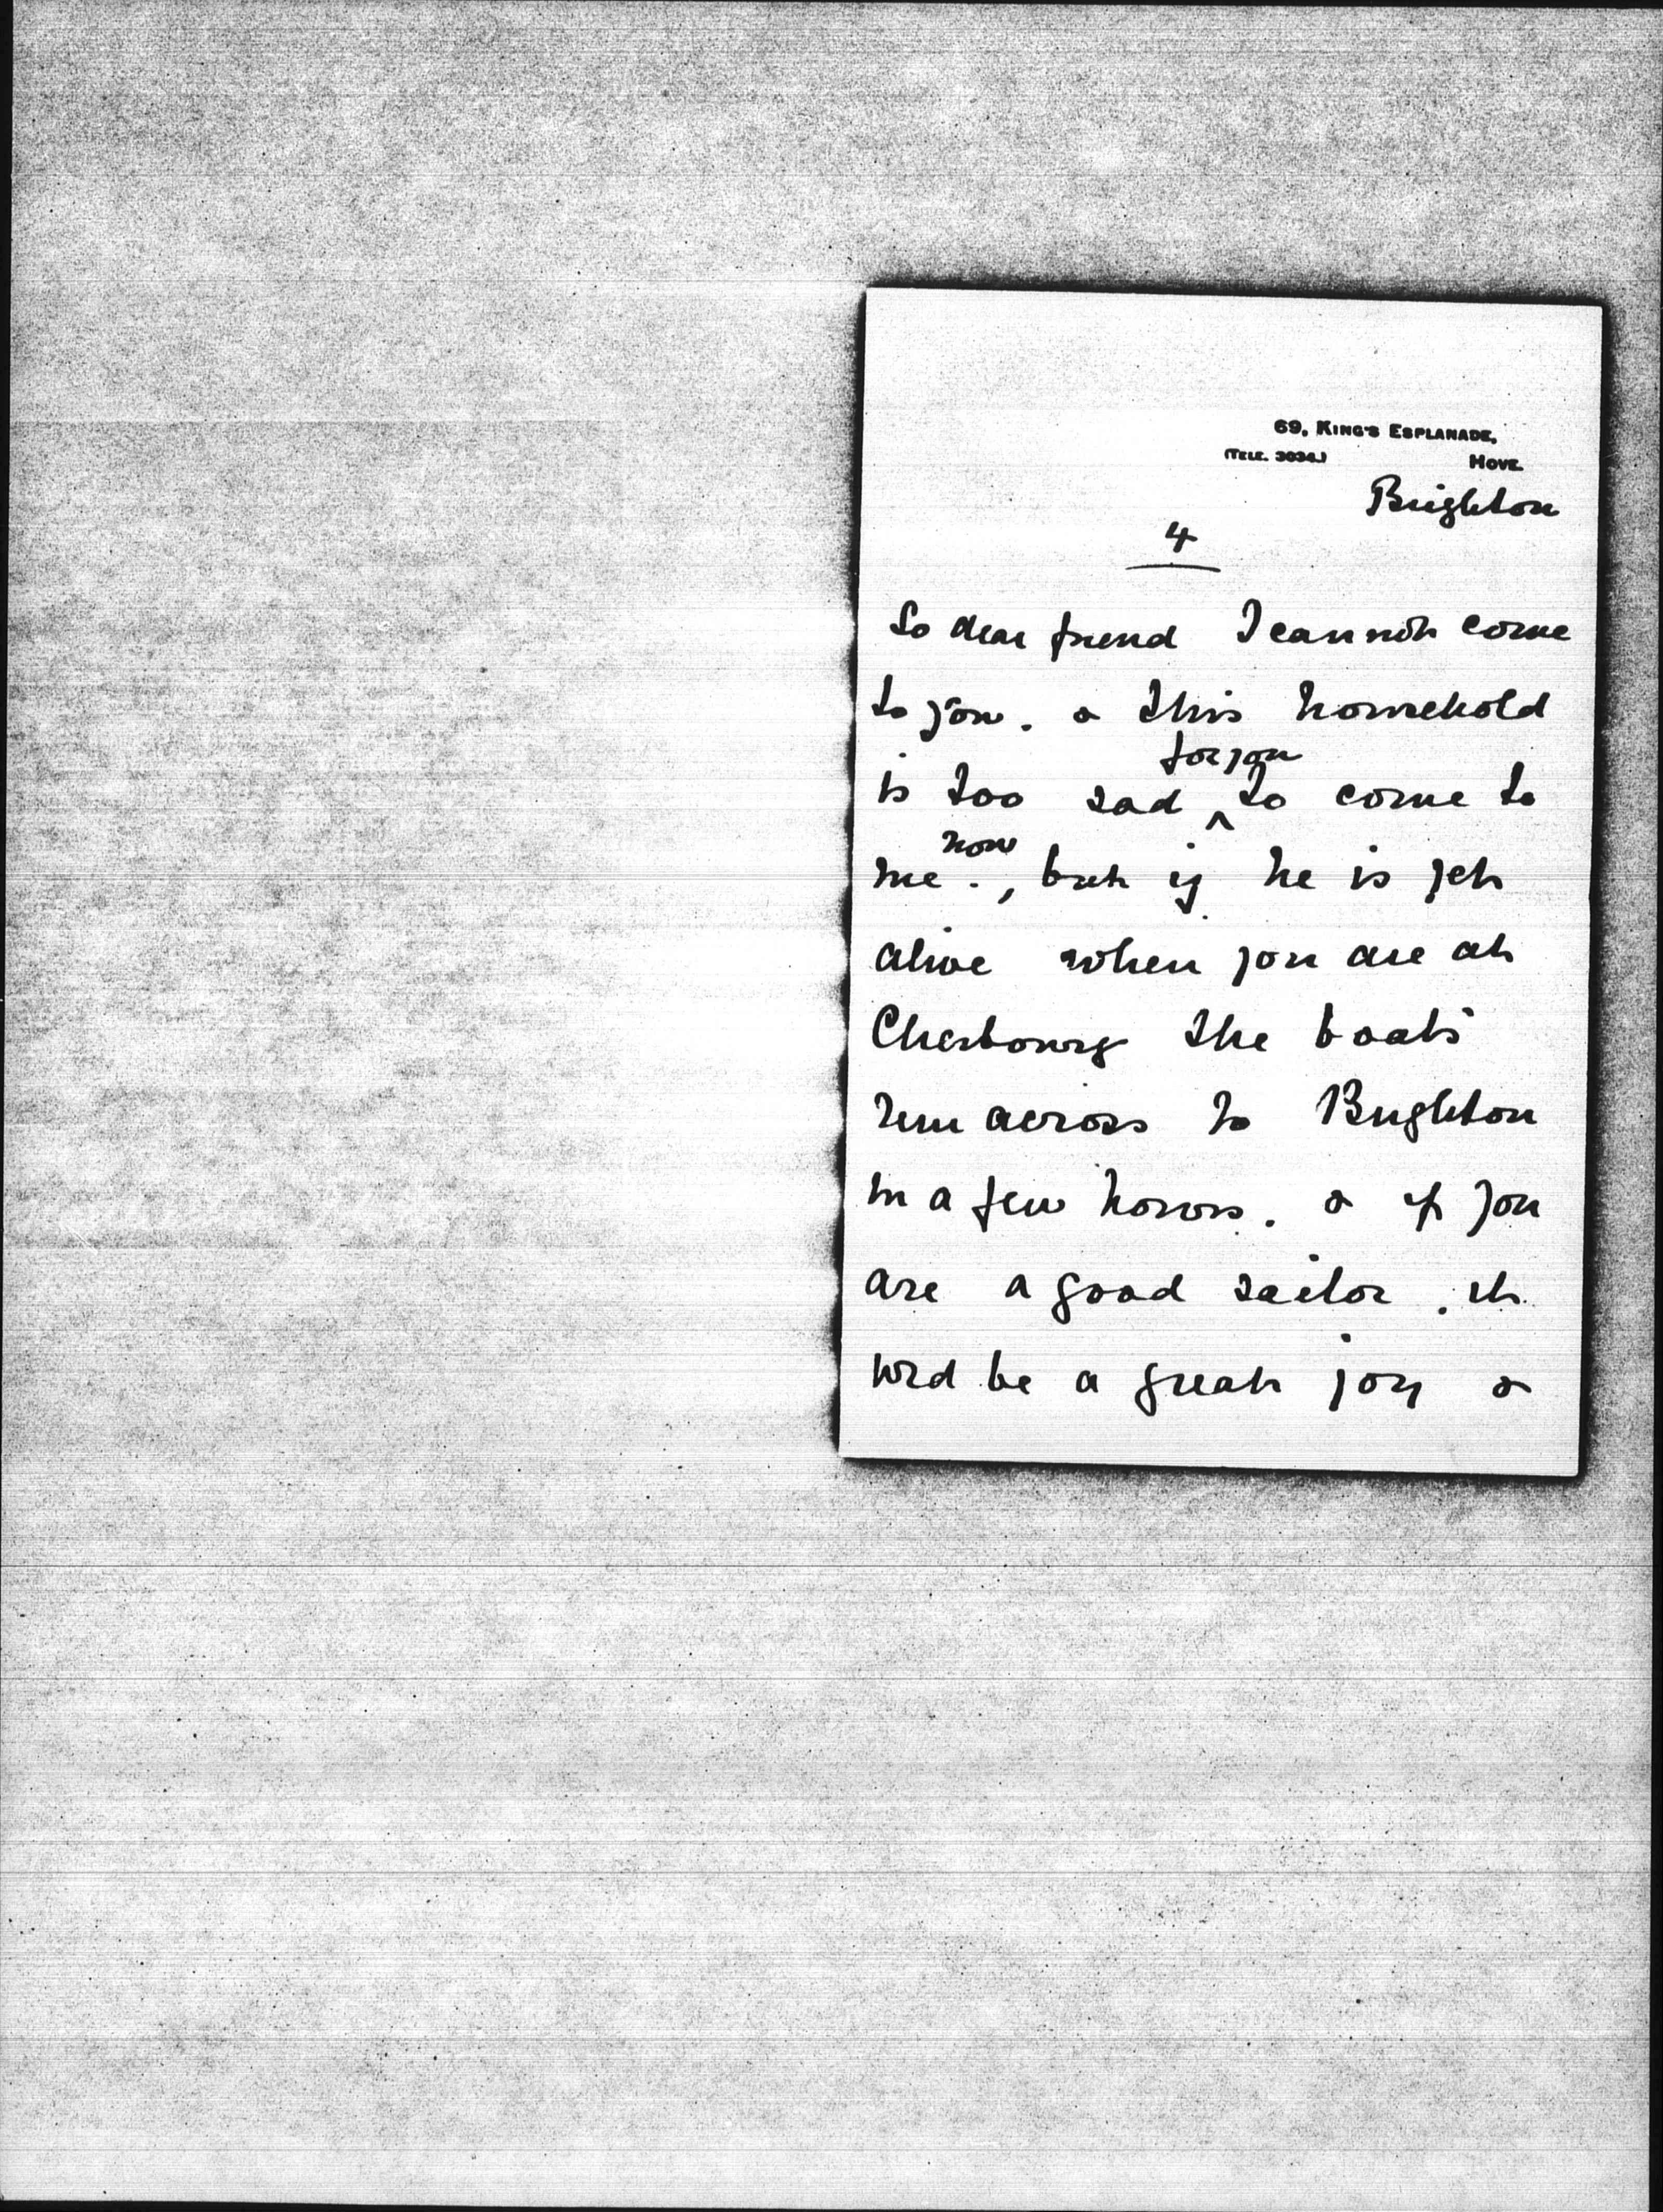 69, KING'S ESPLANADE,
(TELE. 3034.) HOVE.
Brighton
4
So dear friend I cannot come
to you. & this household
is too sad ^for you to come to
me now., but if he is yet
alive when you are at
Cherbourg the boats
run across to Brighton
in a few hours. & if you
are a good sailor. it
wrd be a great joy &